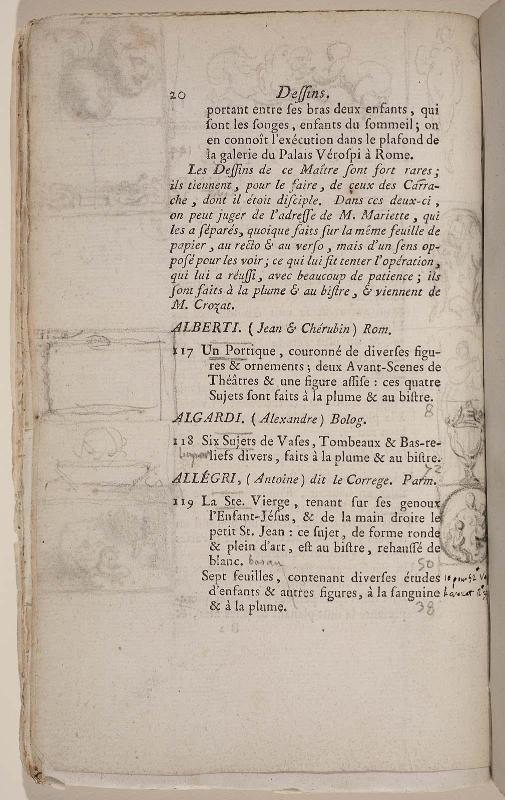 20 Deſſins.
portant entre ſes bras deux enfants, qui
ſont les ſonges, enfants du ſommeil; on
en connoît l'exécution dans le plafond de
la galerie du Palais Véroſpi à Rome.
Les Deſſins de ce Maître ſont fort rares;
ils tiennent, pour le faire, de ceux des Carra-
che, dont il étoit diſciple. Dans ces deux-ci,
on peut juger de l'adreſſe de M. Mariette, qui
les a ſéparés, quoique faits ſur la même feuille de
papier, au recto & au verſo, mais d'un ſens op-
poſé pour les voir; ce qui lui fit tenter l'opération,
qui lui a réuſſi, avec beaucoup de patience; ils
ſont faits à la plume & au biſtre, & viennent de
M. Crozat.
ALBERTI. (Jean & Chérubin) Rom.
117 Un Portique, couronné de diverſes figu-
res & ornements; deux Avant-Scenes de
Théâtres & une figure aſſiſe: ces quatre
Sujets ſont faits à la plume & au biſtre.
8
ALGARDI. (Alexandre) Bolog.
118 Six Sujets de Vaſes, Tombeaux & Bas-re-
liefs divers, faits à la plume & au biſtre.
72
ALLÉGRI, (Antoine) dit le Correge. Parm.
119 La Ste. Vierge, tenant ſur ſes genoux
l'Enfant-Jéſus, & de la main droite le
petit St. Jean: ce ſujet, de forme ronde
& plein d'art, eſt au biſtre, rehauſſé de
blanc. basan 50
Sept feuilles, contenant diverſes études
d'enfants & autres figures, à la ſanguine
& à la plume. 38